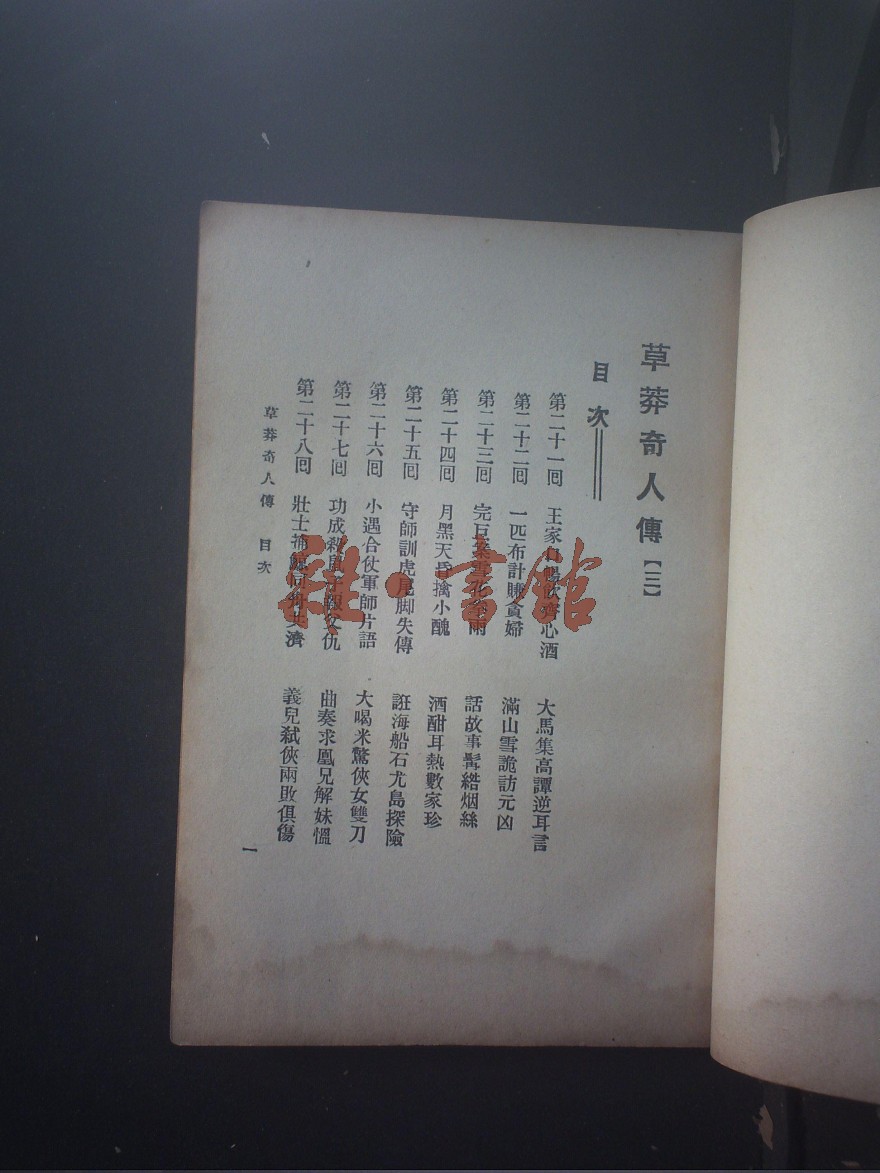 草莽奇人傳【三】
目次
第二十一回 王家 飲 心酒 大馬集高譚逆耳言
第二十二回 一匹布計賺貧婦 滿山雪詭訪元凶
第二十三回 完巨案 花 雨 話故事髯綹烟絲
第二十四回 月黑天昏擒小醜 酒酣耳熱數家珍
第二十五回 守師訓虎尾脚失傳 誑海船石尤島探險
第二十六回 小遇合仗軍師片語 大喝米驚俠女雙刀
第二十七回 功成殺 報父仇 曲奏求凰兄解妹慍
第二十八回 壯士 同舟共濟 義兒弒俠兩敗俱傷
草莽奇人傳 目次
一
雜·書館